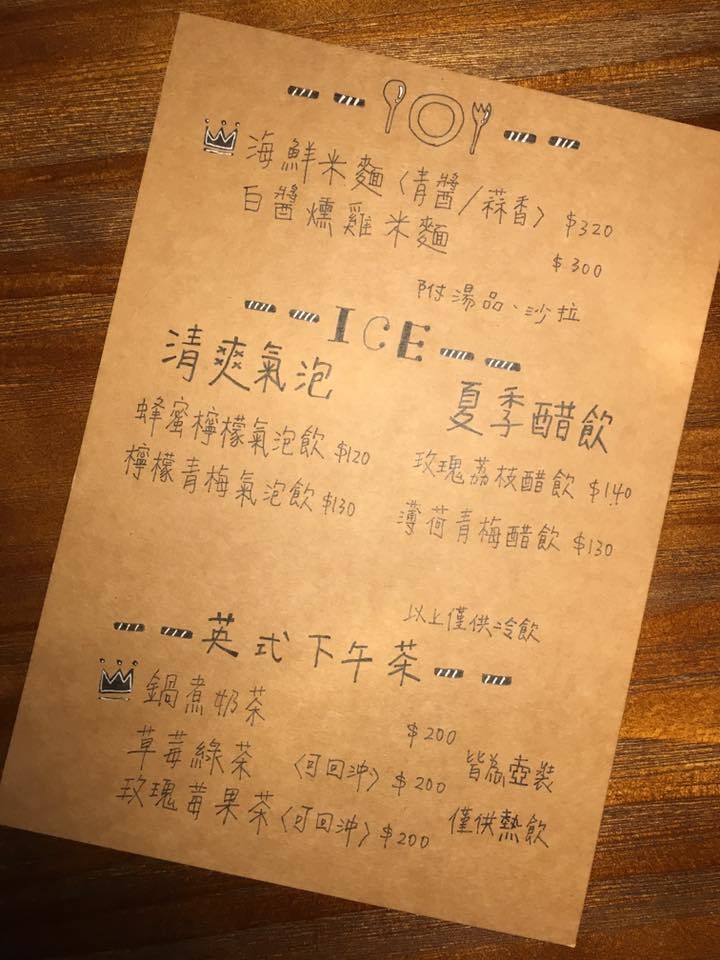 海鮮米麵〈青醬/蒜香〉 $320
白醬燻雞米麵 $300
附湯品、沙拉
ICE
清爽氣泡
蜂蜜檸檬氣泡飲 $120
檸檬青梅氣泡飲 $130
夏季醋飲
玫瑰荔枝醋飲 $140
薄荷青梅醋飲 $130
以上僅供冷飲
英式下午茶
鍋煮奶茶 $200
草莓綠茶 〈可回沖〉 $200
玫瑰莓果茶〈可回沖〉 $200
皆為壺裝
僅供熱飲